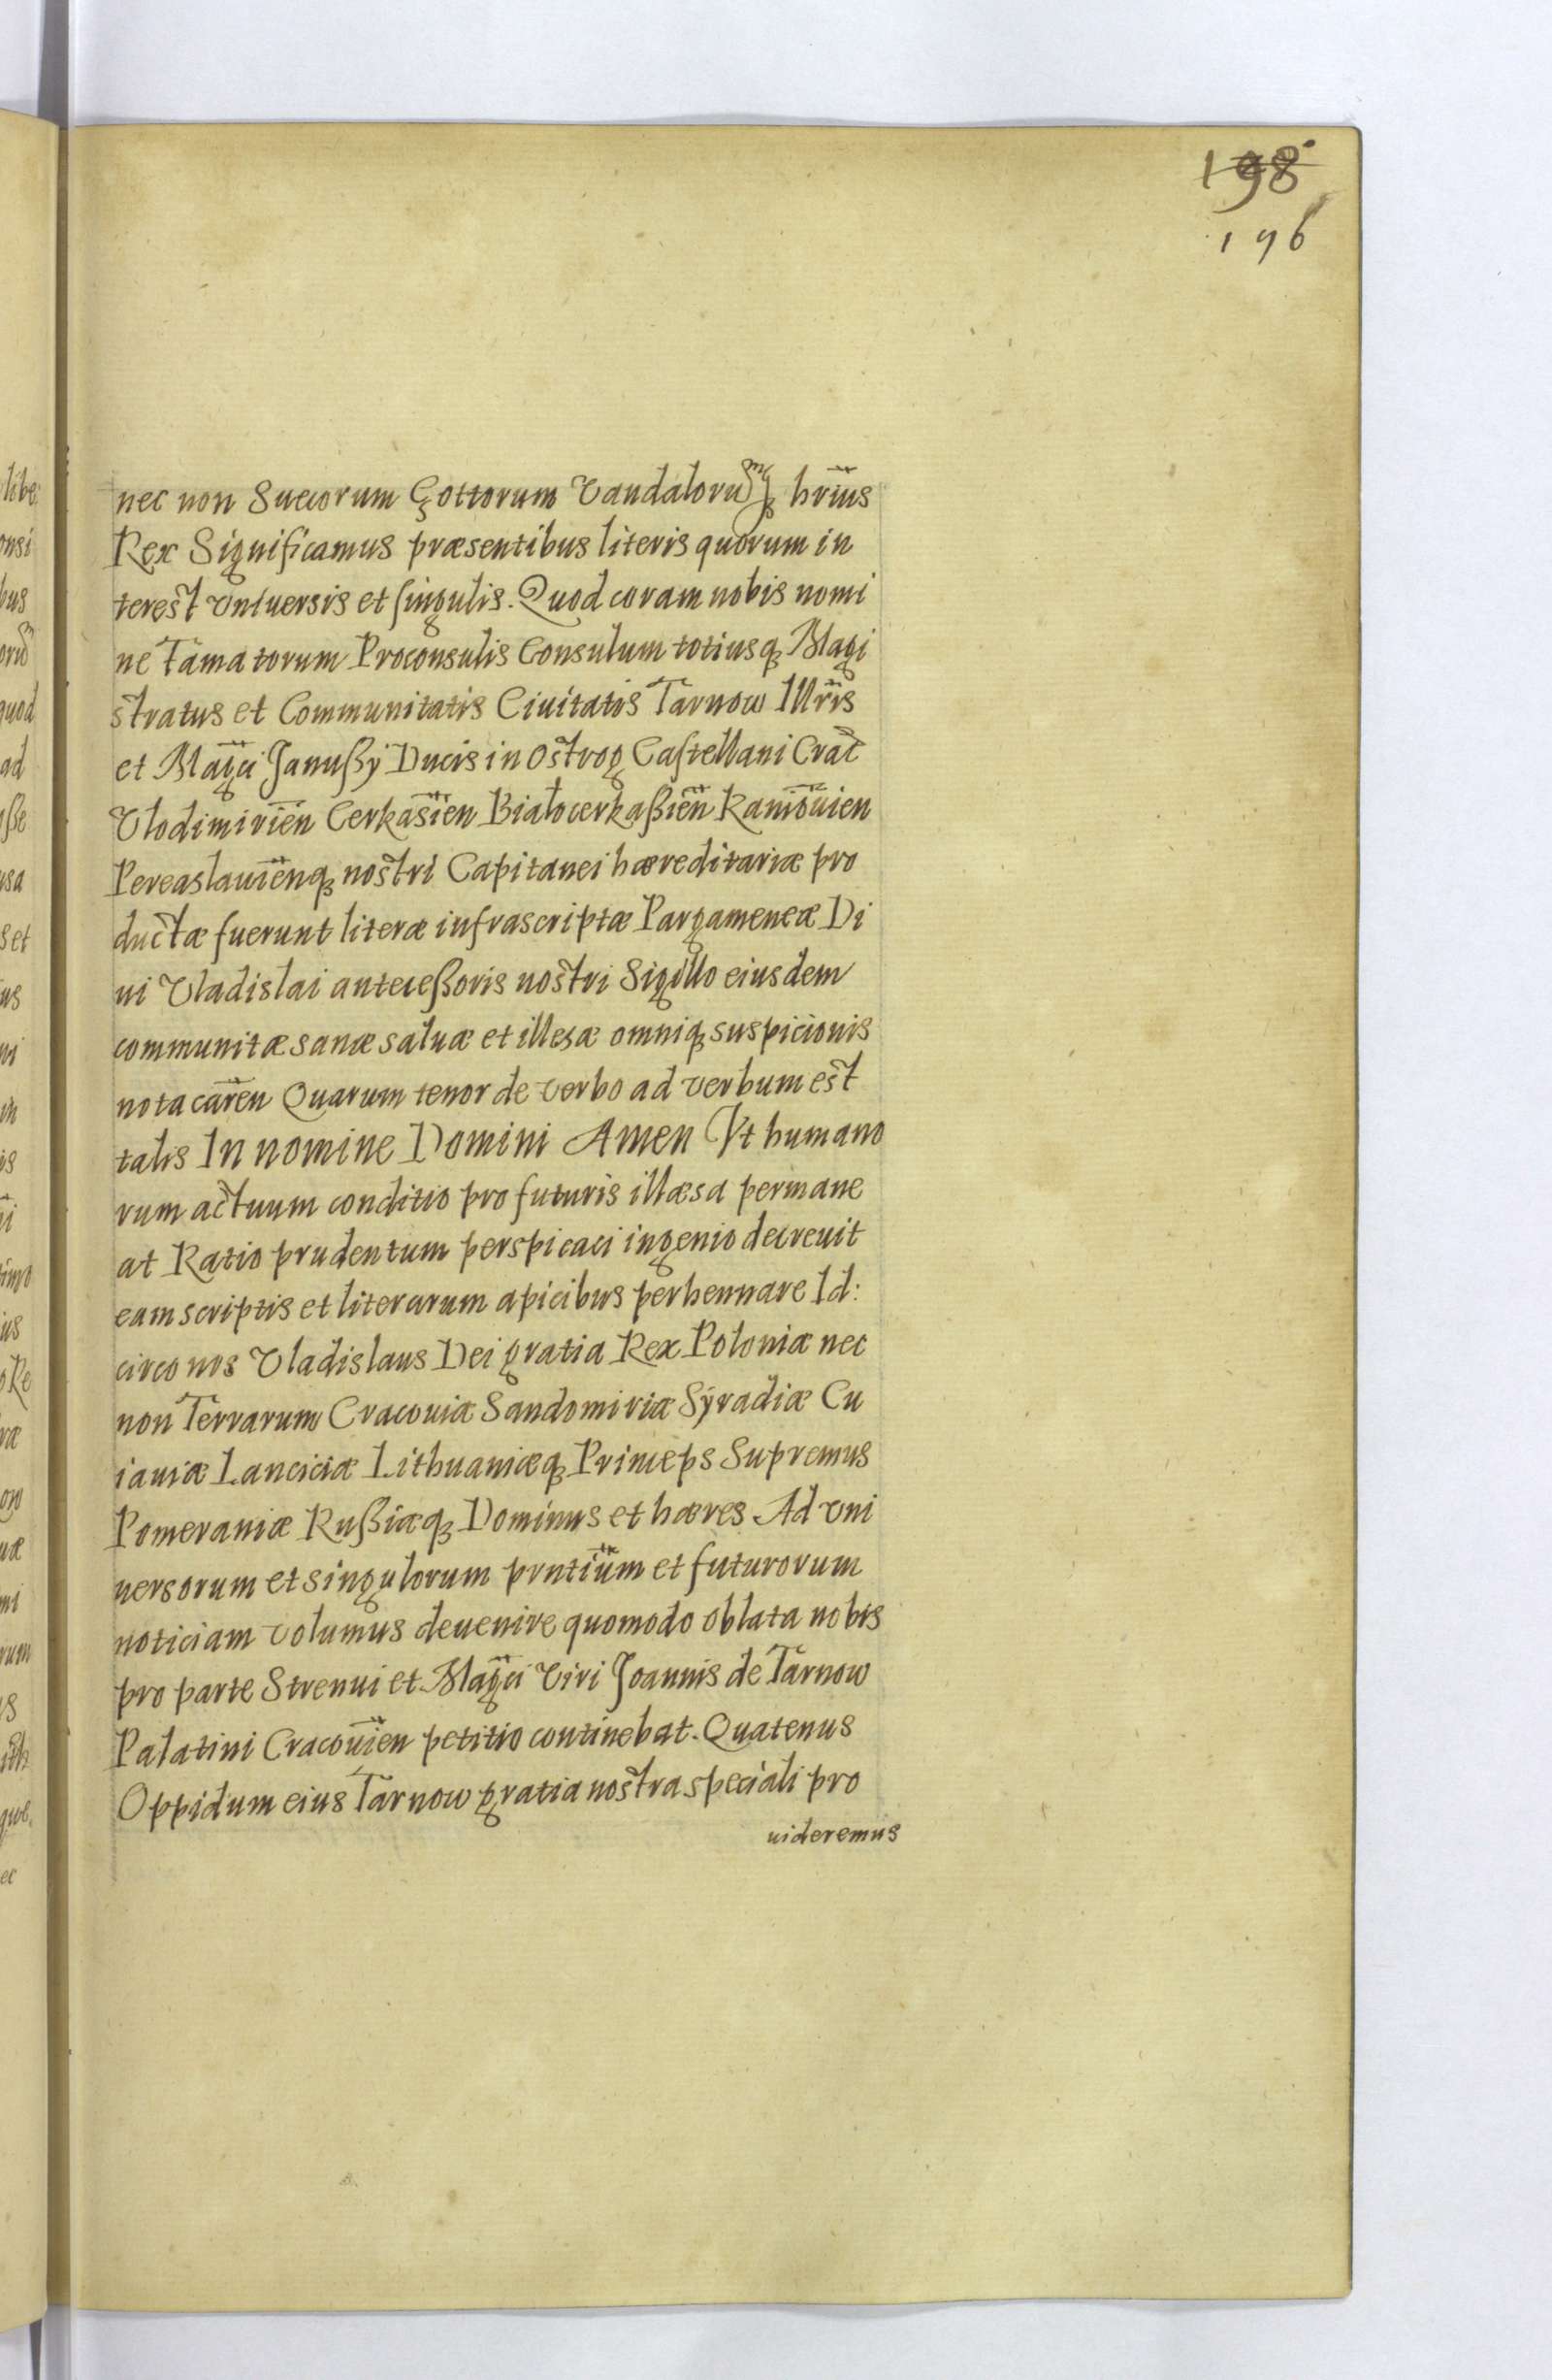 198
196
nec non Suecorum Gottorum Vandalorumq hrius
Rex Significamus præsentibus literis quorum in
terest vniuersis et singulis. Quod coram nobis nomi
ne Fama torum Proconsulis Consulum totiusq Magi
stratus et Communitatis Ciuitatis Tarnow Illris
et Magci Janußÿ Ducis in Ostrog Castellani Crac
Vlodimirien Cerkasien Białocerkaßien Kaniouien
Pereaslauienq nostri Capitanei hæreditariæ pro
ductæ fuerunt literæ infrascriptæ Pargameneæ Di
ui Vladislai anteceßoris nostri Sigillo eiusdem
communitæ sanæ saluæ et illesæ omniq suspicionis
nota caren Quarum tenor de verbo ad verbum est
talis In nomine Domini Amen Vt humano
rum actuum conditio pro futuris illæsa permane
at Ratio prudentum perspicaci ingenio decreuit
eam scriptis et literarum apicibus perhennare Id:
circo nos Vladislaus Dei gratia Rex Poloniæ nec
non Terrarum Cracouiæ Sandomiriæ Sÿradiæ Cu
iauiæ Lanciciæ Lithuaniæq Princeps Supremus
Pomeraniæ Rußiæq Dominus et hæres Ad vni
uersorum et singulorum prntium et futurorum
noticiam volumus deuenire quomodo oblata nobis
pro parte Strenui et Magci Viri Joannis de Tarnow
Palatini Cracouien petitio continebat. Quatenus
Oppidum eius Tarnow gratia nostra speciali pro
uideremus